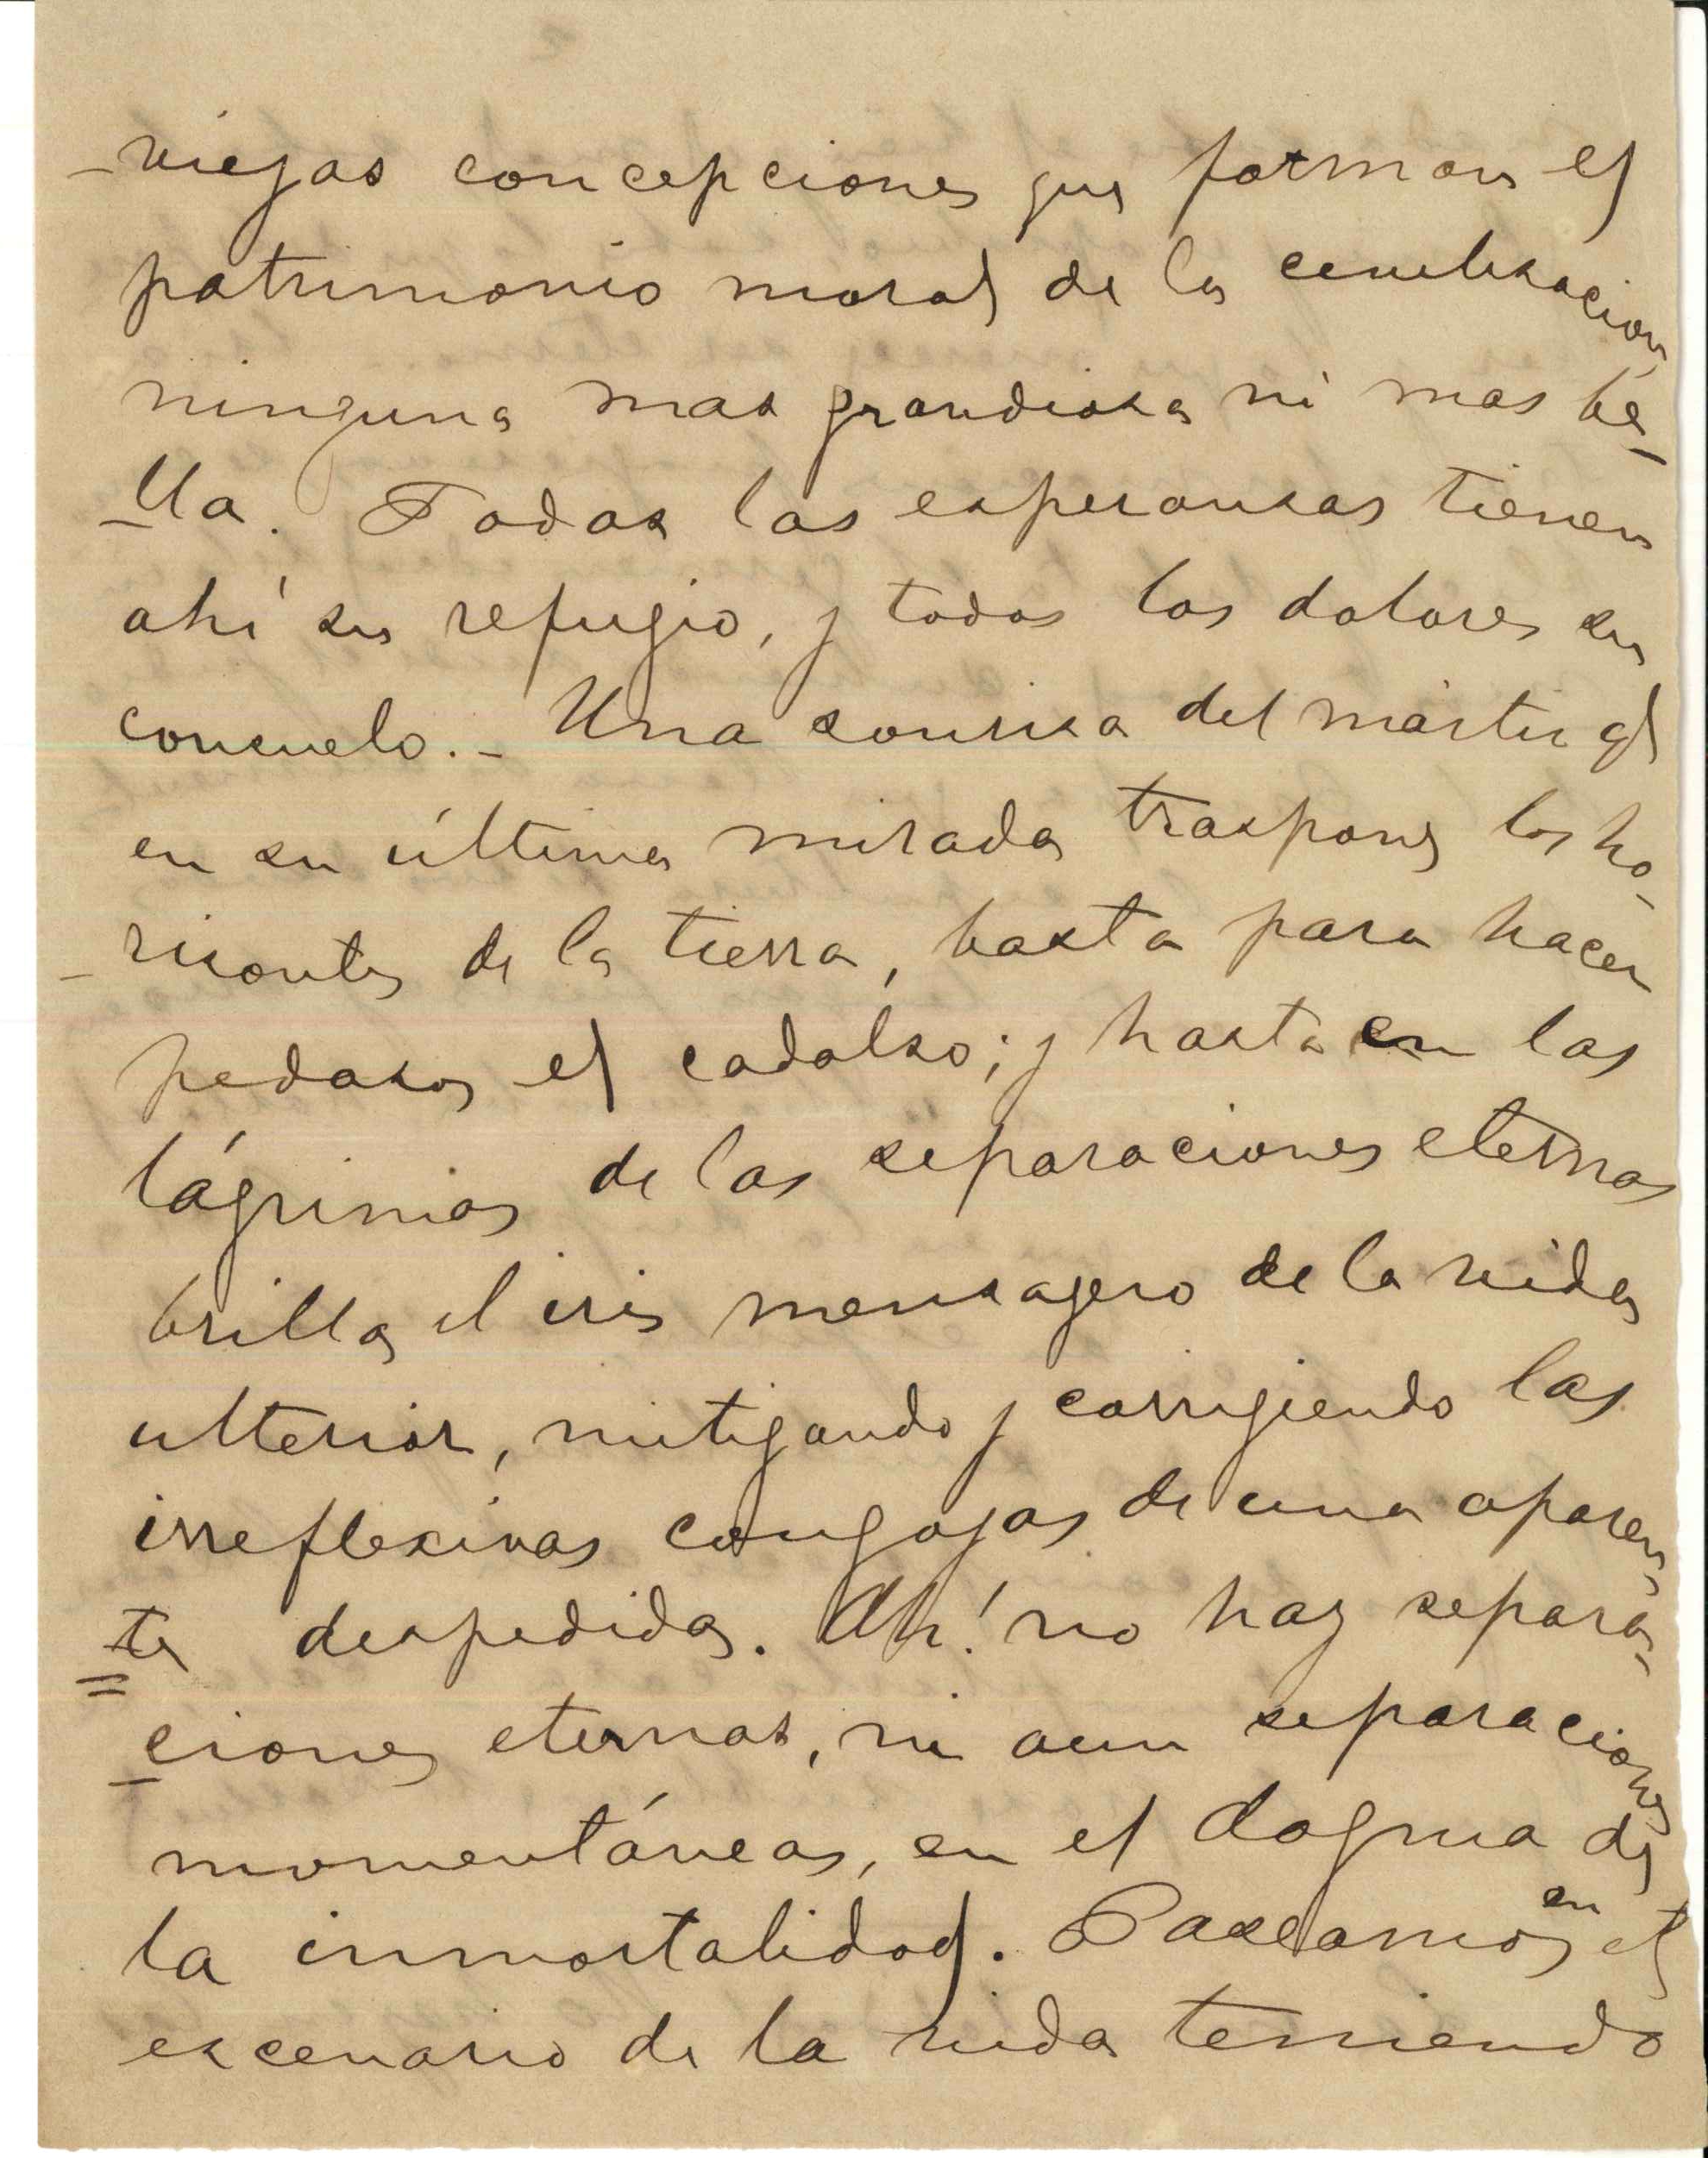 -viejas concepciones que forman el
patrimonio moral de la civilisacion,
ninguna mas grandiosa ni mas be-
-lla. Todas las esperansas tienen
ahí su refugio, y todos los dolores su
consuelo.- Una sonrisa del mártir q'
en su última mirada traspone los ho-
-risontes de la tierra, basta para hacer
pedasos el cadalso; y hasta en las
lágrimas de las separaciones eternas
brilla el iris mensagero de la vida
ulterior, mitigando y corrigiendo las
irreflexivas congojas de una aparen-
te despedida. Ah! no hay separa-
-ciones eternas, ni aun separaciones
momentáneas, en el dogma de
la inmortalidad. Paseamos en el
escenario de la vida teniendo